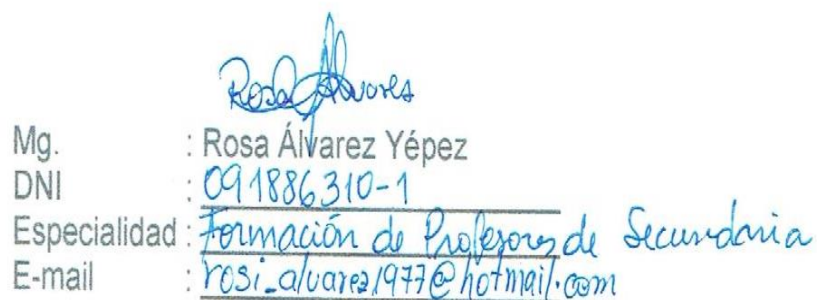 Rosa Alvares
Mg. : Rosa Álvarez Yépez
DNI : 091886310-1
Especialidad : Formación de Profesores de Secundaria
E-mail : rosi_alvarez1977@hotmail.com